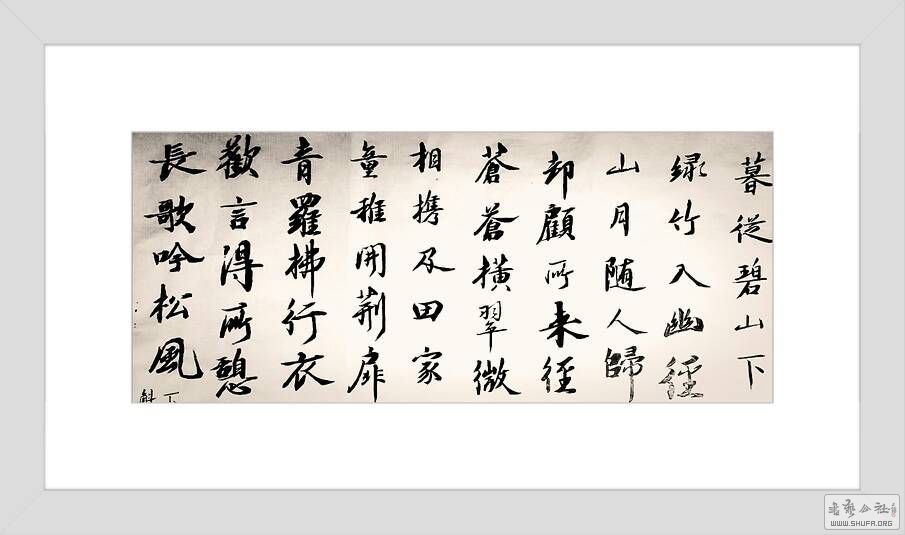 暮從碧山下
緑竹入幽徑
山月随人歸
却顧所来徑
蒼蒼横翠微
相携及田家
童稚開荆扉
青羅拂行衣
歡言得所憩
長歌吟松風
下
书艺公社
WWW.SHUFA.ORG